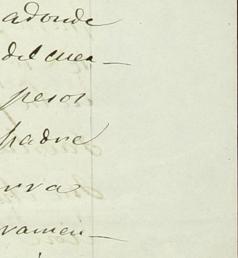 adonde
del cuer—
pesos
padre
rra
ramen—